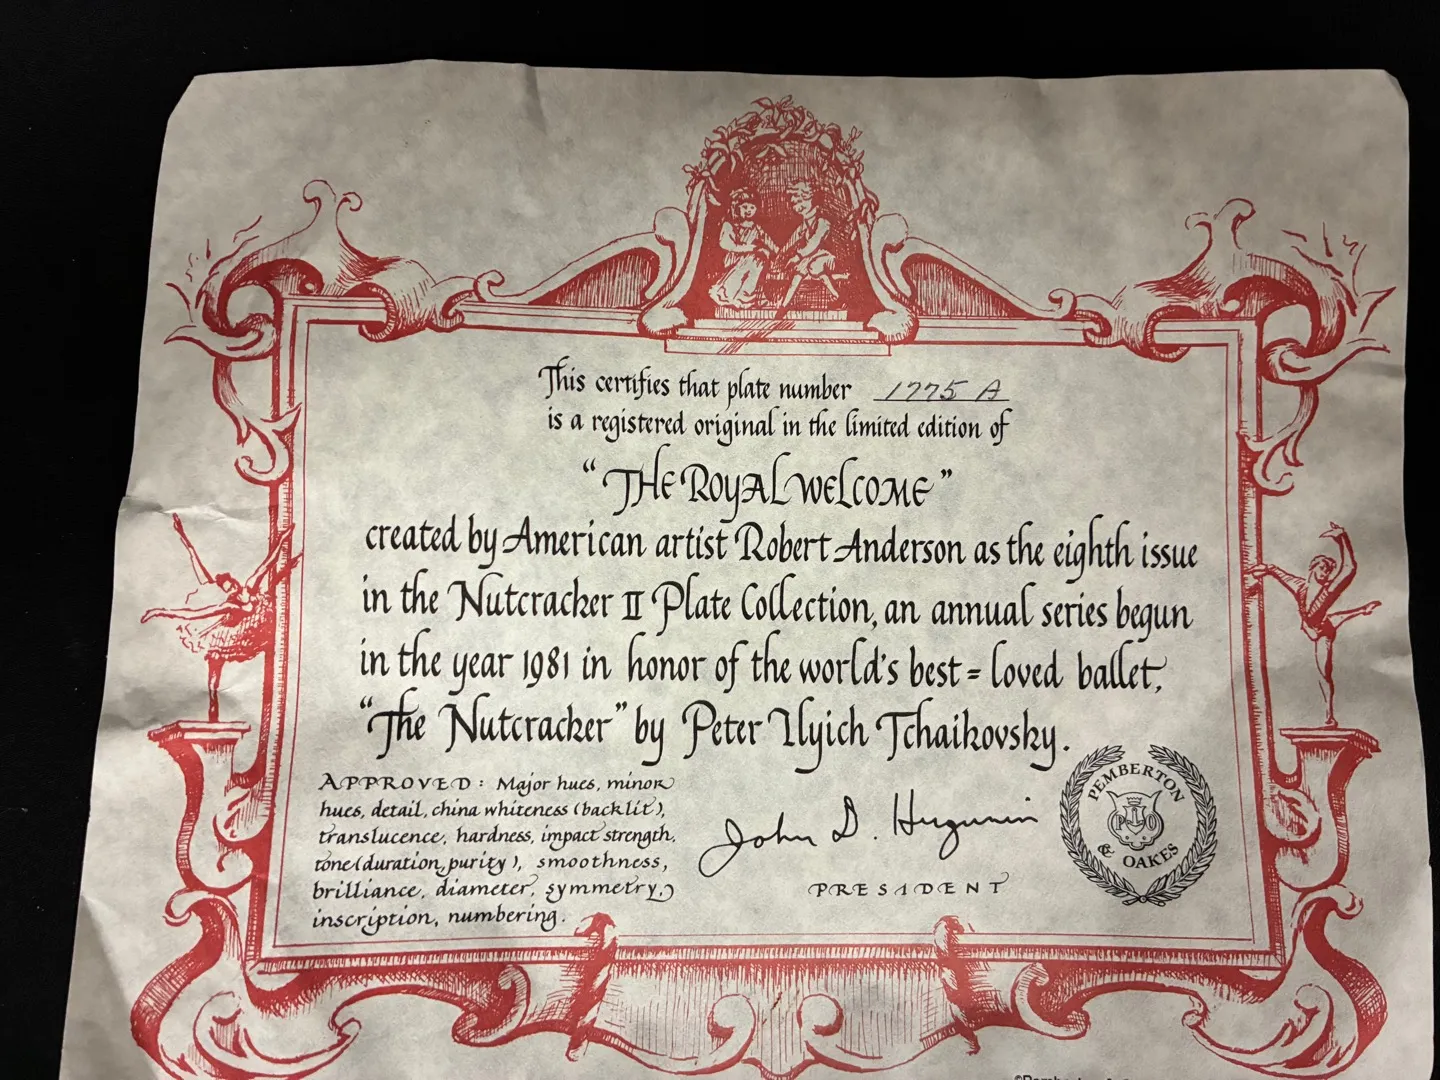 This certifies that plate number 1775 A
is a registered original in the limited edition of
“THE ROYAL WELCOME”
created by American artist Robert Anderson as the eighth issue
in the Nutcracker II Plate Collection, an annual series begun
in the year 1981 in honor of the world's best=loved ballet,
“The Nutcracker” by Peter Ilyich Tchaikovsky.
APPROVED: Major hues, minor
hues, detail, china whiteness (backlit),
translucence, hardness, impact strength,
tone (duration, purity), smoothness,
brilliance, diameter, symmetry,
inscription, numbering.
John D. Hugunin
PRESIDENT
PEMBERTON
P O
& OAKES